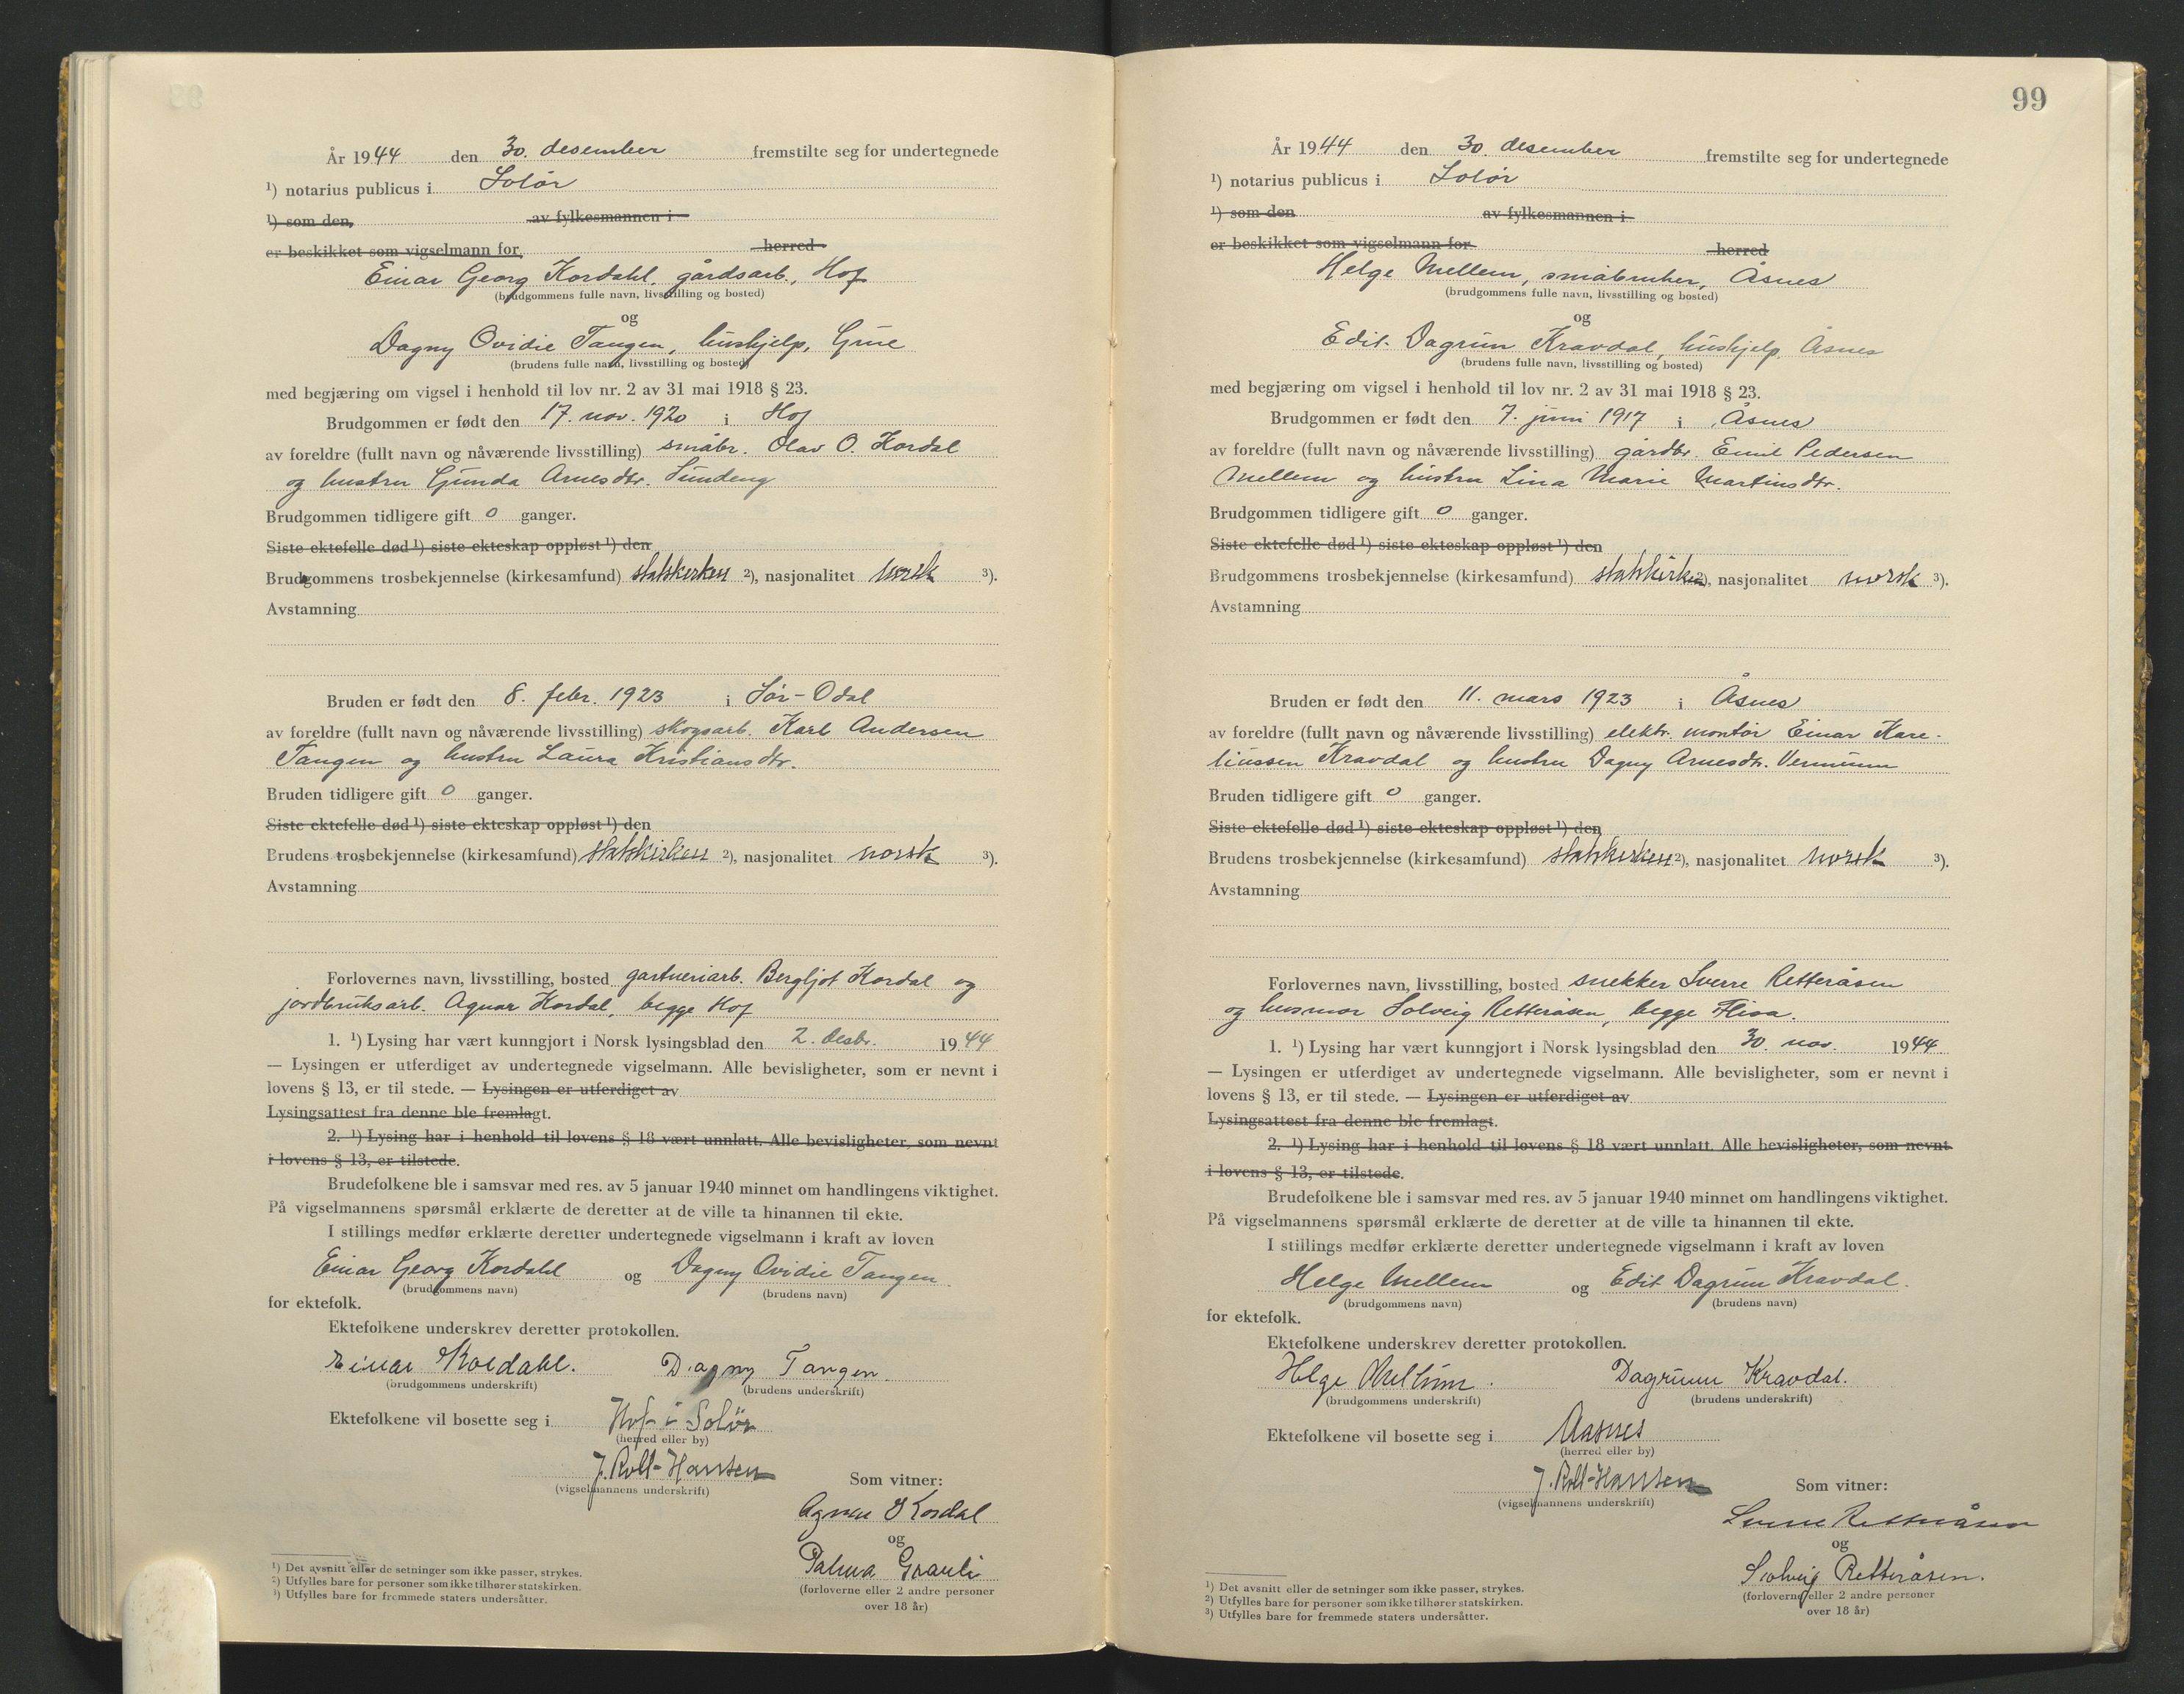 År 1944 den 30. desember fremstilte seg for undertegnede
¹) notarius publicus i Solør
¹) som den, av fylkesmannen i
er beskikket som vigselmann for, herred
Einar Georg Kordahl, gårdsarb., Hof
(brudgommens fulle navn, livsstilling og bosted)
og
Dagny Ovidie Tangen, hushjelp, Grue
(brudens fulle navn, livsstilling og bosted)
med begjæring om vigsel i henhold til lov nr. 2 av 31 mai 1918 § 23.
Brudgommen er født den 17. nov. 1920 i Hof
av foreldre (fullt navn og nåværende livsstilling) småbr. Olav O. Kordal
og hustru Gunda Arnesdtr. Sundeng
Brudgommen tidligere gift 0 ganger.
Siste ektefelle død ¹) siste ekteskap oppløst ¹) den
Brudgommens trosbekjennelse (kirkesamfund) statskirken ²), nasjonalitet norsk ³).
Avstamning
Bruden er født den 8. febr. 1923 i Sør-Odal
av foreldre (fullt navn og nåværende livsstilling) skogsarb. Karl Andersen
Tangen og hustru Laura Kristiansdtr.
Bruden tidligere gift 0 ganger.
Siste ektefelle død ¹) siste ekteskap oppløst ¹) den
Brudens trosbekjennelse (kirkesamfund) statskirken ²), nasjonalitet norsk ³).
Avstamning
Forlovernes navn, livsstilling, bosted gartneriarb. Bergljot Kordal og
jordbruksarb. Agnar Kordal, begge Hof
1. ¹) Lysing har vært kunngjort i Norsk lysingsblad den 2. desbr. 1944
— Lysingen er utferdiget av undertegnede vigselmann. Alle bevisligheter, som er nevnt i
lovens § 13, er til stede. — Lysingen er utferdiget av
Lysingsattest fra denne ble fremlagt.
2. ¹) Lysing har i henhold til lovens § 18 vært unnlatt. Alle bevisligheter, som nevnt
i lovens § 13, er tilstede.
Brudefolkene ble i samsvar med res. av 5 januar 1940 minnet om handlingens viktighet.
På vigselmannens spørsmål erklærte de deretter at de ville ta hinannen til ekte.
I stillings medfør erklærte deretter undertegnede vigselmann i kraft av loven
Einar Georg Kordahl og Dagny Ovidie Tangen
(brudgommens navn) (brudens navn)
for ektefolk.
Ektefolkene underskrev deretter protokollen.
Einar Kordahl. Dagny Tangen.
(brudgommens underskrift) (brudens underskrift)
Ektefolkene vil bosette seg i Hof i Solør
(herred eller by)
J. Roll-Hansen
(vigselmannens underskrift)
Som vitner:
Agnar Kordal
og
Palma Grauli
(forloverne eller 2 andre personer
over 18 år)
¹) Det avsnitt eller de setninger som ikke passer, strykes.
²) Utfylles bare for personer som ikke tilhører statskirken.
³) Utfylles bare for fremmede staters undersåtter.
99
År 1944 den 30. desember fremstilte seg for undertegnede
¹) notarius publicus i Solør
¹) som den av fylkesmannen i
er beskikket som vigselmann for herred
Helge Mellem, småbruker, Åsnes
(brudgommens fulle navn, livsstilling og bosted)
og
Edit Dagrun Kravdal, hushjelp, Åsnes
(brudens fulle navn, livsstilling og bosted)
med begjæring om vigsel i henhold til lov nr. 2 av 31 mai 1918 § 23.
Brudgommen er født den 7. juni 1917 i Åsnes
av foreldre (fullt navn og nåværende livsstilling) gårdbr. Emil Pedersen
Mellem og hustru Lina Marie Martinsdtr.
Brudgommen tidligere gift 0 ganger.
Siste ektefelle død ¹) siste ekteskap oppløst ¹) den
Brudgommens trosbekjennelse (kirkesamfund) statskirken ²), nasjonalitet norsk ³).
Avstamning
Bruden er født den 11. mars 1923 i Åsnes
av foreldre (fullt navn og nåværende livsstilling) elektr. montør Einar Kare-
liussen Kravdal og hustru Dagny Arnesdtr. Vermunn
Bruden tidligere gift 0 ganger.
Siste ektefelle død ¹) siste ekteskap oppløst ¹) den
Brudens trosbekjennelse (kirkesamfund) statskirken ²), nasjonalitet norsk ³).
Avstamning
Forlovernes navn, livsstilling, bosted snekker Sverre Retteråsen
og husmor Solveig Retteråsen, begge Flisa.
1. ¹) Lysing har vært kunngjort i Norsk lysingsblad den 30. nov. 1944
— Lysingen er utferdiget av undertegnede vigselmann. Alle bevisligheter, som er nevnt i
lovens § 13, er til stede. — Lysingen er utferdiget av
Lysingsattest fra denne ble fremlagt.
2. ¹) Lysing har i henhold til lovens § 18 vært unnlatt. Alle bevisligheter, som nevnt
i lovens § 13, er tilstede.
Brudefolkene ble i samsvar med res. av 5 januar 1940 minnet om handlingens viktighet.
På vigselmannens spørsmål erklærte de deretter at de ville ta hinannen til ekte.
I stillings medfør erklærte deretter undertegnede vigselmann i kraft av loven
Helge Mellem og Edit Dagrun Kravdal.
(brudgommens navn) (brudens navn)
for ektefolk.
Ektefolkene underskrev deretter protokollen.
Helge Mellem. Dagrunn Kravdal.
(brudgommens underskrift) (brudens underskrift)
Ektefolkene vil bosette seg i Aasnes
(herred eller by)
J. Roll-Hansen
(vigselmannens underskrift)
Som vitner:
Sverre Retteråsen
og
Solveig Retteråsen.
(forloverne eller 2 andre personer
over 18 år)
¹) Det avsnitt eller de setninger som ikke passer, strykes.
²) Utfylles bare for personer som ikke tilhører statskirken.
³) Utfylles bare for fremmede staters undersåtter.